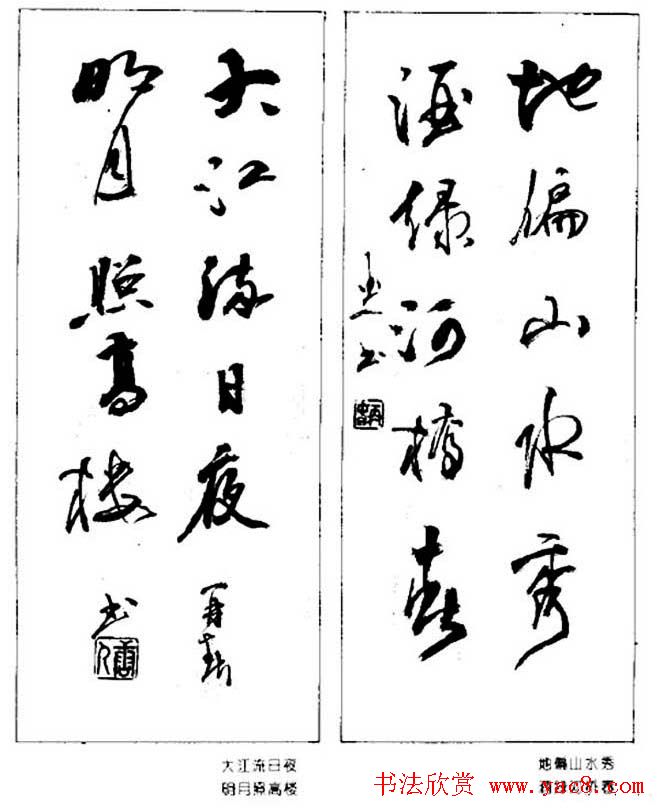 地偏山水秀
酒绿河桥春
大江流日夜
明月照高楼
书
大江流日夜
明月照高楼
地偏山水秀
书法欣赏 www.yac8.com